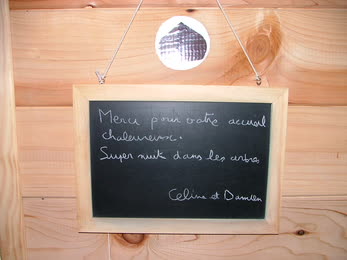 Merci pour votre accueil
chaleureux.
Super nuit dans les arbres
Celine et Damien